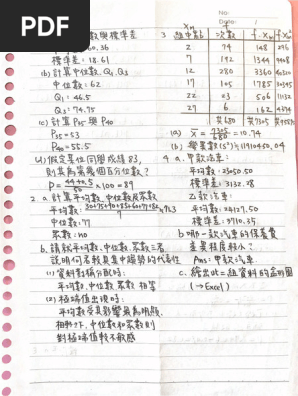 PDF
No:
Date:
數與標準差
標準差: 18.61
(b) 計算中位數, Q1, Q3
中位數: 62
Q1: 46.5
Q3: 74.75
(c) 計算 P35 與 P40
P35 = 53
P40 = 55.5
(d) 假定某位同學成績 83,
則其為第幾個百位數?
P = 44+0.5/50 × 100 = 89
2. a. 計算平均數, 中位數及眾數
中位數: 77
眾數: no
b. 請就平均數、中位數、眾數三者
說明何者較具集中趨勢的代表性
(1) 資料對稱分配時:
平均數、中位數、眾數 相等
(2) 極端值出現時:
平均數受其影響最為明顯,
相較之下, 中位數和眾數則
對極端值較不敏感
3. 組中點 次數 f·Xm f·Xm²
2 74 148 296
7 192 1344 9408
12 280 3360 40320
17 105 1785 30345
22 23 506 11132
27 6 162 4374
共680 共7305
(a) x̄ = 7305/680 = 10.74
4. a. 甲款汽車:
平均數: 23050.50
標準差: 3132.28
乙款汽車:
平均數: 24127.50
標準差: 3710.35
b. 哪一款汽車的保養費
差異程度較小?
Ans: 甲款汽車.
c. 繪出此二組資料的盒形圖
(→Excel)